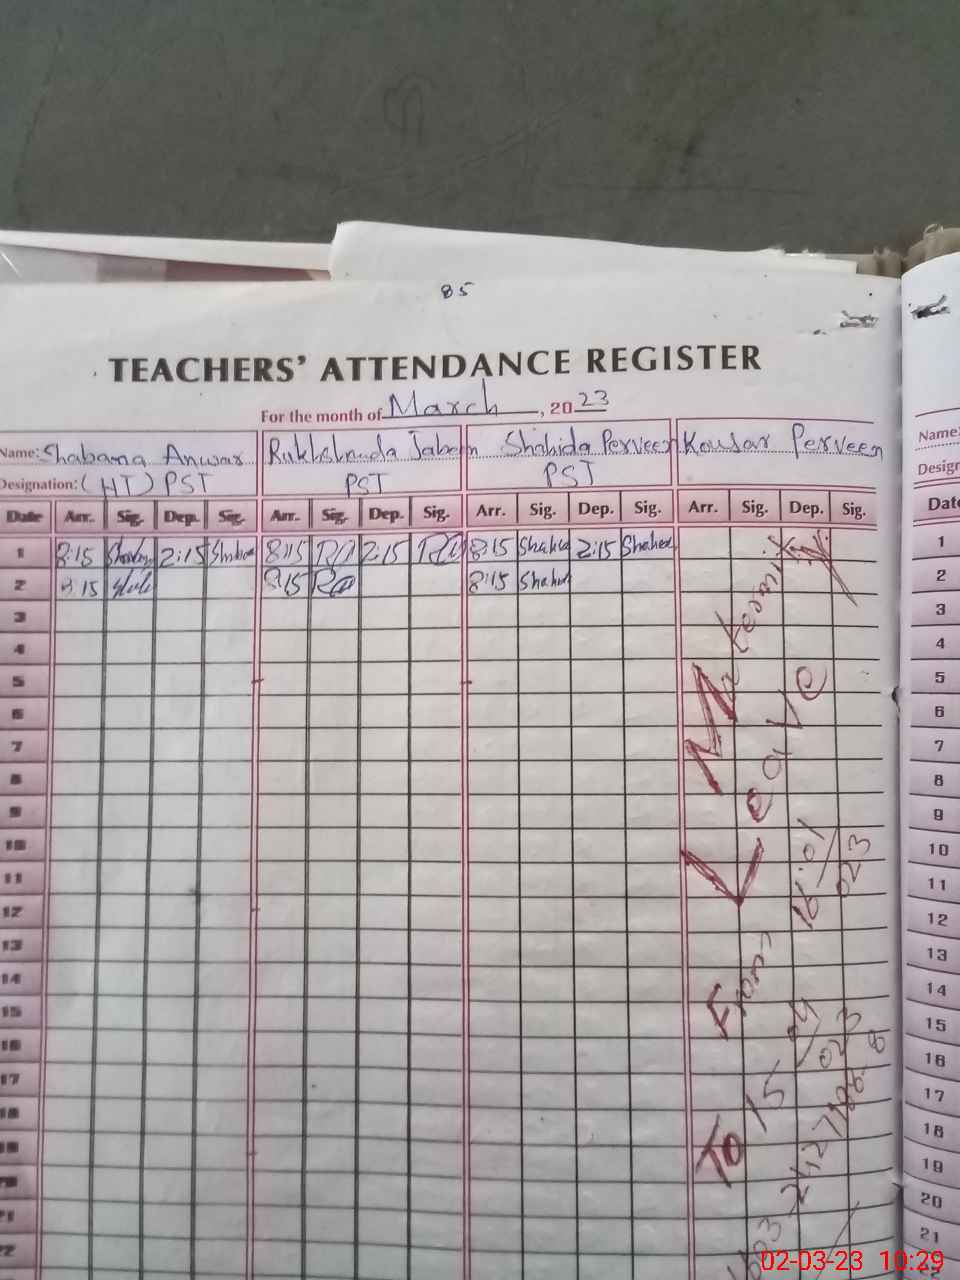 85
TEACHERS' ATTENDANCE REGISTER
For the month of March, 2023
Name: Shabana Anwar Rukhshanda Jabeen Shahida Perveen Kousar Perveen
Designation: (HT) PST PST PST
Date Arr. Sig. Dep. Sig. Arr. Sig. Dep. Sig. Arr. Sig. Dep. Sig. Arr. Sig. Dep. Sig.
1 8:15 2:15 8:15 RA 2:15 RA 8:15 Shahida 2:15 Shahida
2 8:15 8:15 RA 8:15 Shahida
3
4
5
6
7
8
9
10
11
12
13
14
15
16
17
18
19
20
21
22
Maternity
Leave
From 16-01/023
To 15-04/023
Name:
Design
Date
1
2
3
4
5
6
7
8
9
10
11
12
13
14
15
16
17
18
19
20
21
02-03-23 10:29